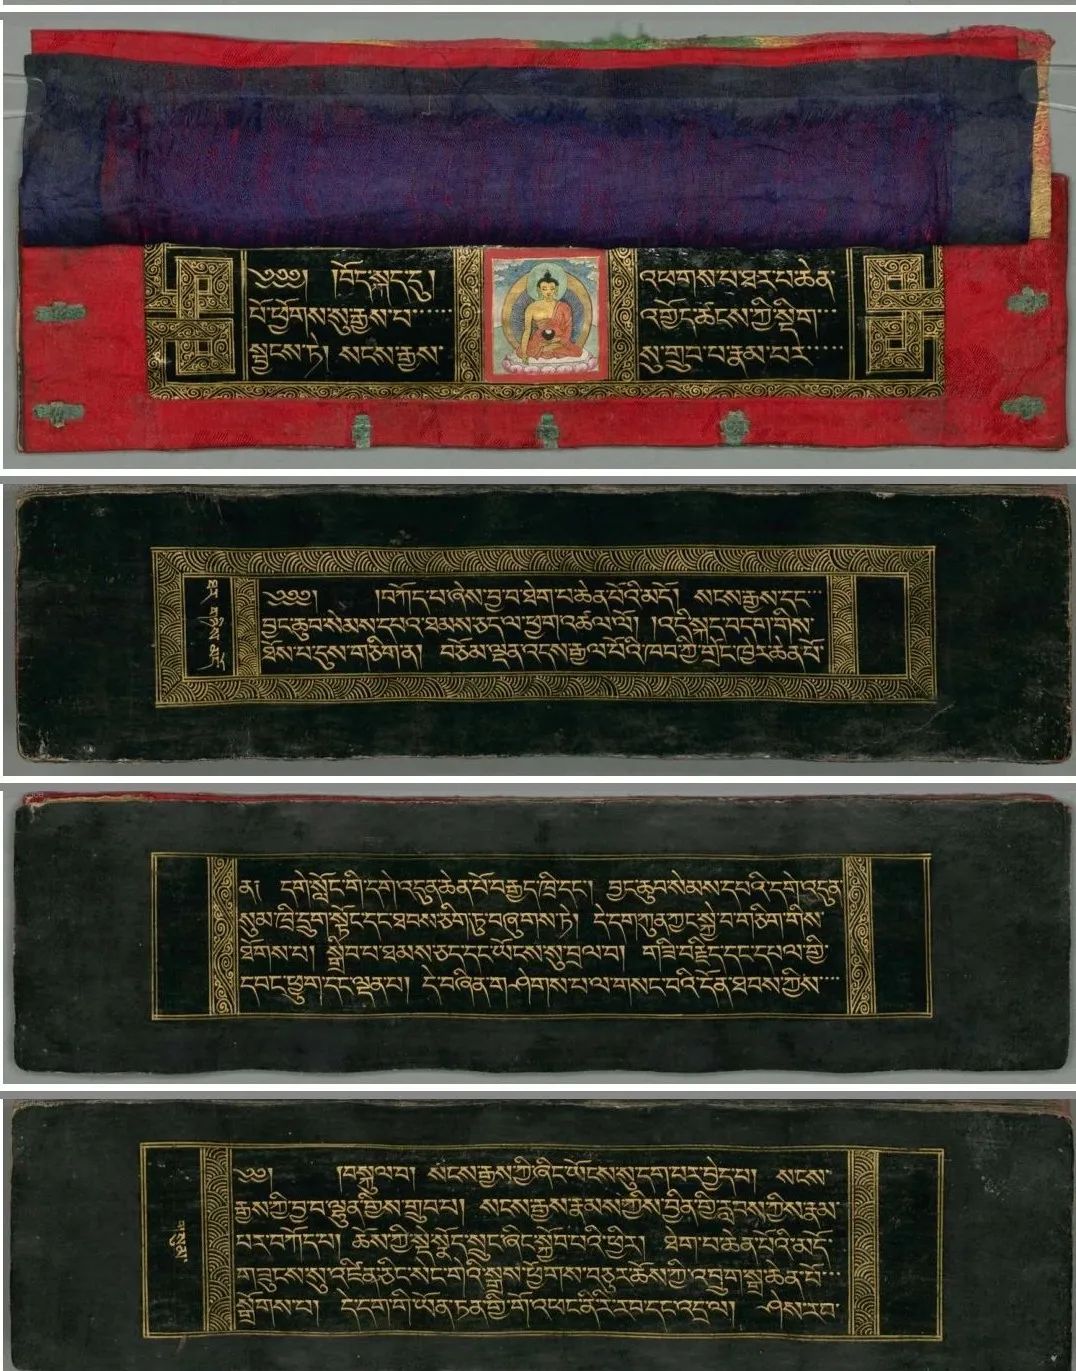 ༄༅༅། །བོད་སྐད་དུ། འཕགས་པ་ཐར་པ་ཆེན་
པོ་ཕྱོགས་སུ་རྒྱས་པ་ འགྱོད་ཚངས་ཀྱི་སྡིག་
སྦྱངས་ཏེ། སངས་རྒྱས་ སུ་གྲུབ་པ་རྣམ་པར་
༄༅༅། །བཀོད་པ་ཞེས་བྱ་བ་ཐེག་པ་ཆེན་པོའི་མདོ། སངས་རྒྱས་དང་
བྱང་ཆུབ་སེམས་དཔའ་ཐམས་ཅད་ལ་ཕྱག་འཚལ་ལོ། །འདི་སྐད་བདག་གིས་
ཐོས་པ་དུས་གཅིག་ན། བཅོམ་ལྡན་འདས་རྒྱལ་པོའི་ཁབ་ཀྱི་གྲོང་ཁྱེར་ཆེན་པོ་
ན། དགེ་སློང་གི་དགེ་འདུན་ཆེན་པོ་བརྒྱད་ཁྲི་དང་། བྱང་ཆུབ་སེམས་དཔའི་དགེ་འདུན་
སུམ་ཁྲི་དྲུག་སྟོང་དང་ཐབས་ཅིག་ཏུ་བཞུགས་ཏེ། དེ་དག་ཀུན་ཀྱང་སྐྱེ་བ་གཅིག་གིས་
ཐོགས་པ། སྒྲིབ་པ་ཐམས་ཅད་དང་ཡོངས་སུ་བྲལ་བ། གཟི་བརྗིད་དང་དཔལ་གྱི་
དབང་ཕྱུག་དང་ལྡན་པ། དེ་བཞིན་གཤེགས་པ་ལ་གསང་བའི་དོན་ཐབས་ཀྱིས་
༄༅། །བསྐུལ་བ། སངས་རྒྱས་ཀྱི་ཞིང་ཡོངས་སུ་དག་པར་བྱེད་པ། སངས་
རྒྱས་ཀྱི་བྱ་བ་ལྷུན་གྱིས་གྲུབ་པ། སངས་རྒྱས་རྣམས་ཀྱིས་བྱིན་གྱི་རླབས་ཀྱིས་རྣམ་
པར་བཀོད་པ། ཆོས་ཀྱི་སྡེ་སྣོད་སྲུང་ཞིང་སྐྱོབ་པའི་ཕྱིར། ཐེག་པ་ཆེན་པོའི་མདོ་
གཟུངས་སུ་འཛིན་ཅིང་སེང་གེའི་སྒྲས་ཕྱོགས་བཅུར་ཆོས་ཀྱི་འབྲུག་སྒྲ་ཆེན་པོ་
སྒྲོགས་པ། དེ་དག་གི་ཡོན་ཏན་གྱི་གོ་འཕང་ནི་རི་རབ་དང་འདྲ་ལ། ཤེས་རབ་